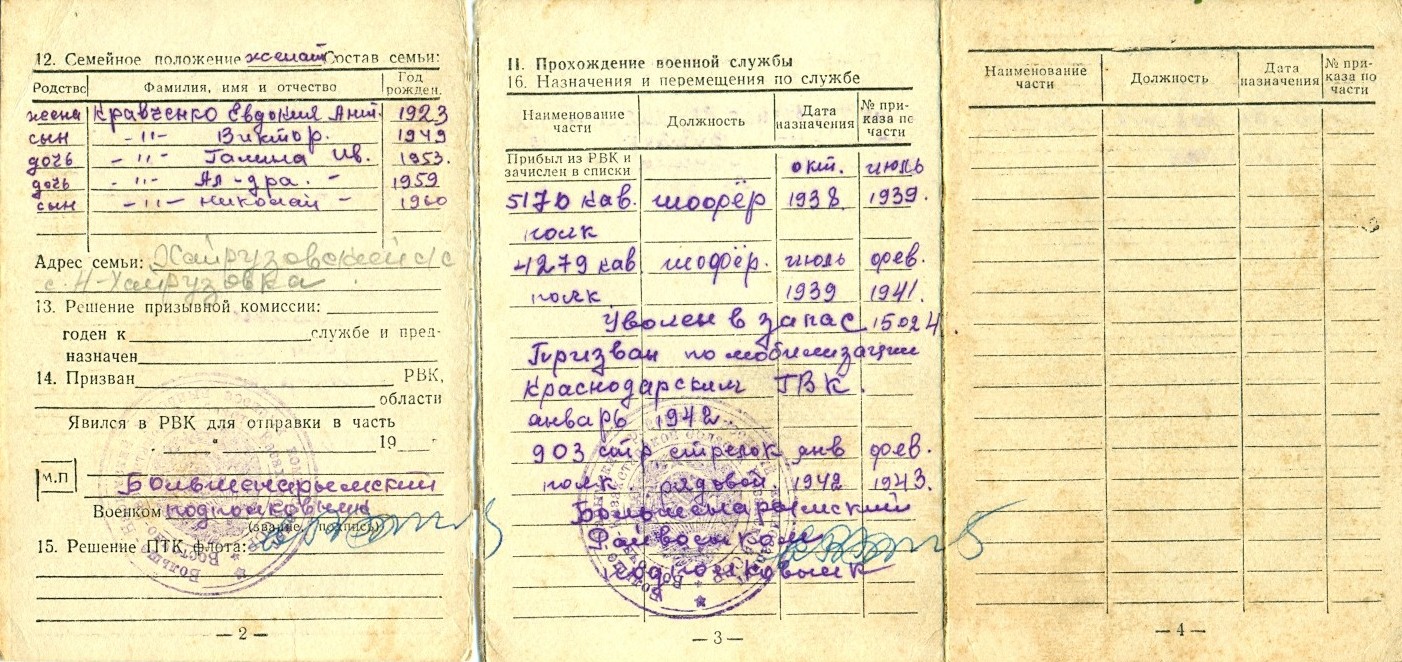 12. Семейное положение женат Состав семьи:
Родство Фамилия, имя и отчество Год рожден.
жена Кравченко Евдокия Ант. 1923
сын -"- Виктор. 1949
дочь -"- Галина Ив. 1953.
дочь -"- Ал-дра. - 1959
сын -"- Николай - 1960
Адрес семьи: Хайрузовский с/с
с. Н-Хайрузовка
13. Решение призывной комиссии:
годен к службе и пред-
назначен
14. Призван РВК,
области
Явился в РВК для отправки в часть
" 19
М.П
Большенарымский
Военком подполковник
(звание, подпись)
15. Решение ПТК флота:
— 2 —
II. Прохождение военной службы
16. Назначения и перемещения по службе
Наименование части Должность Дата назначения № при-каза по части
Прибыл из РВК и
зачислен в списки окт. июль
5170 кав. шофёр 1938 1939.
полк
4279 кав шофёр. июль фев.
полк 1939 1941.
Уволен в запас 15.02.4
Призван по мобилизации
Краснодарским ГВК.
январь 1942
903 стр стрелок янв фев.
полк. рядовой. 1942 1943.
Большенарымский
Райвоенком
подполковник
— 3 —
Наименование части Должность Дата назначения № при-каза по части
— 4 —